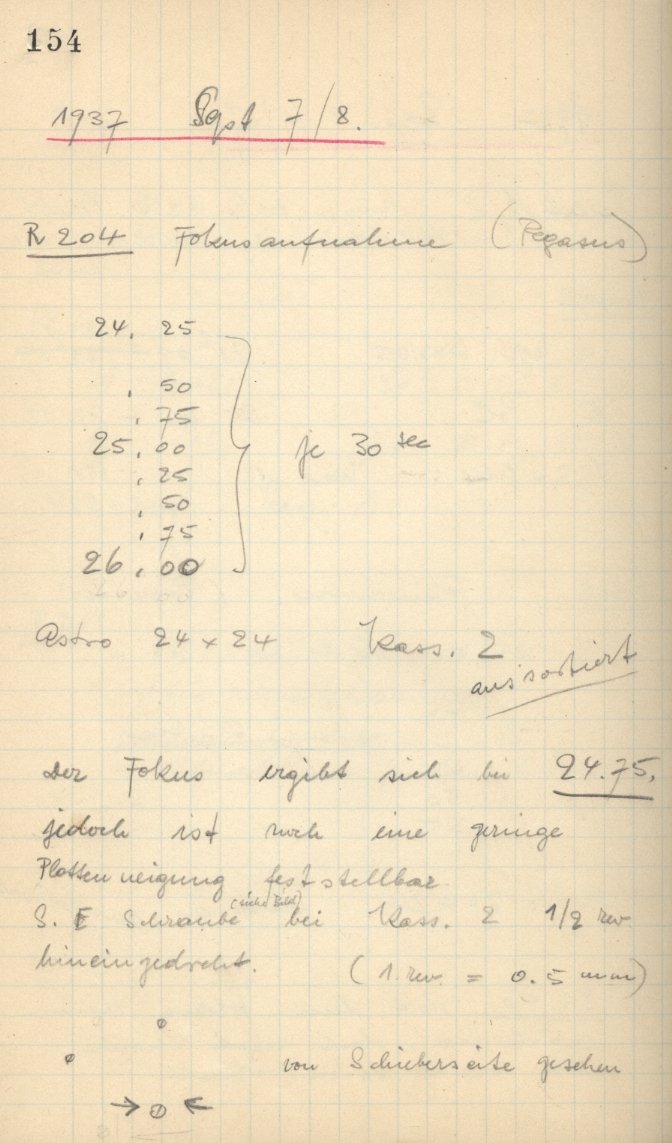 154
1937 Sept 7/8.
R 204 Fokusaufnahme (Pegasus)
24. 25
. 50
. 75
25. 00
. 25
. 50
. 75
26. 00
je 30 sec
Astro 24 x 24 Kass. 2
aussortiert
Der Fokus ergibt sich bei 24.75,
jedoch ist noch eine geringe
Plattenneigung feststellbar.
(siehe Bild)
S. E Schraube bei Kass. 2 1/2 rev
hineingedreht. (1. rev. = 0.5 mm)
von Schieberseite gesehen